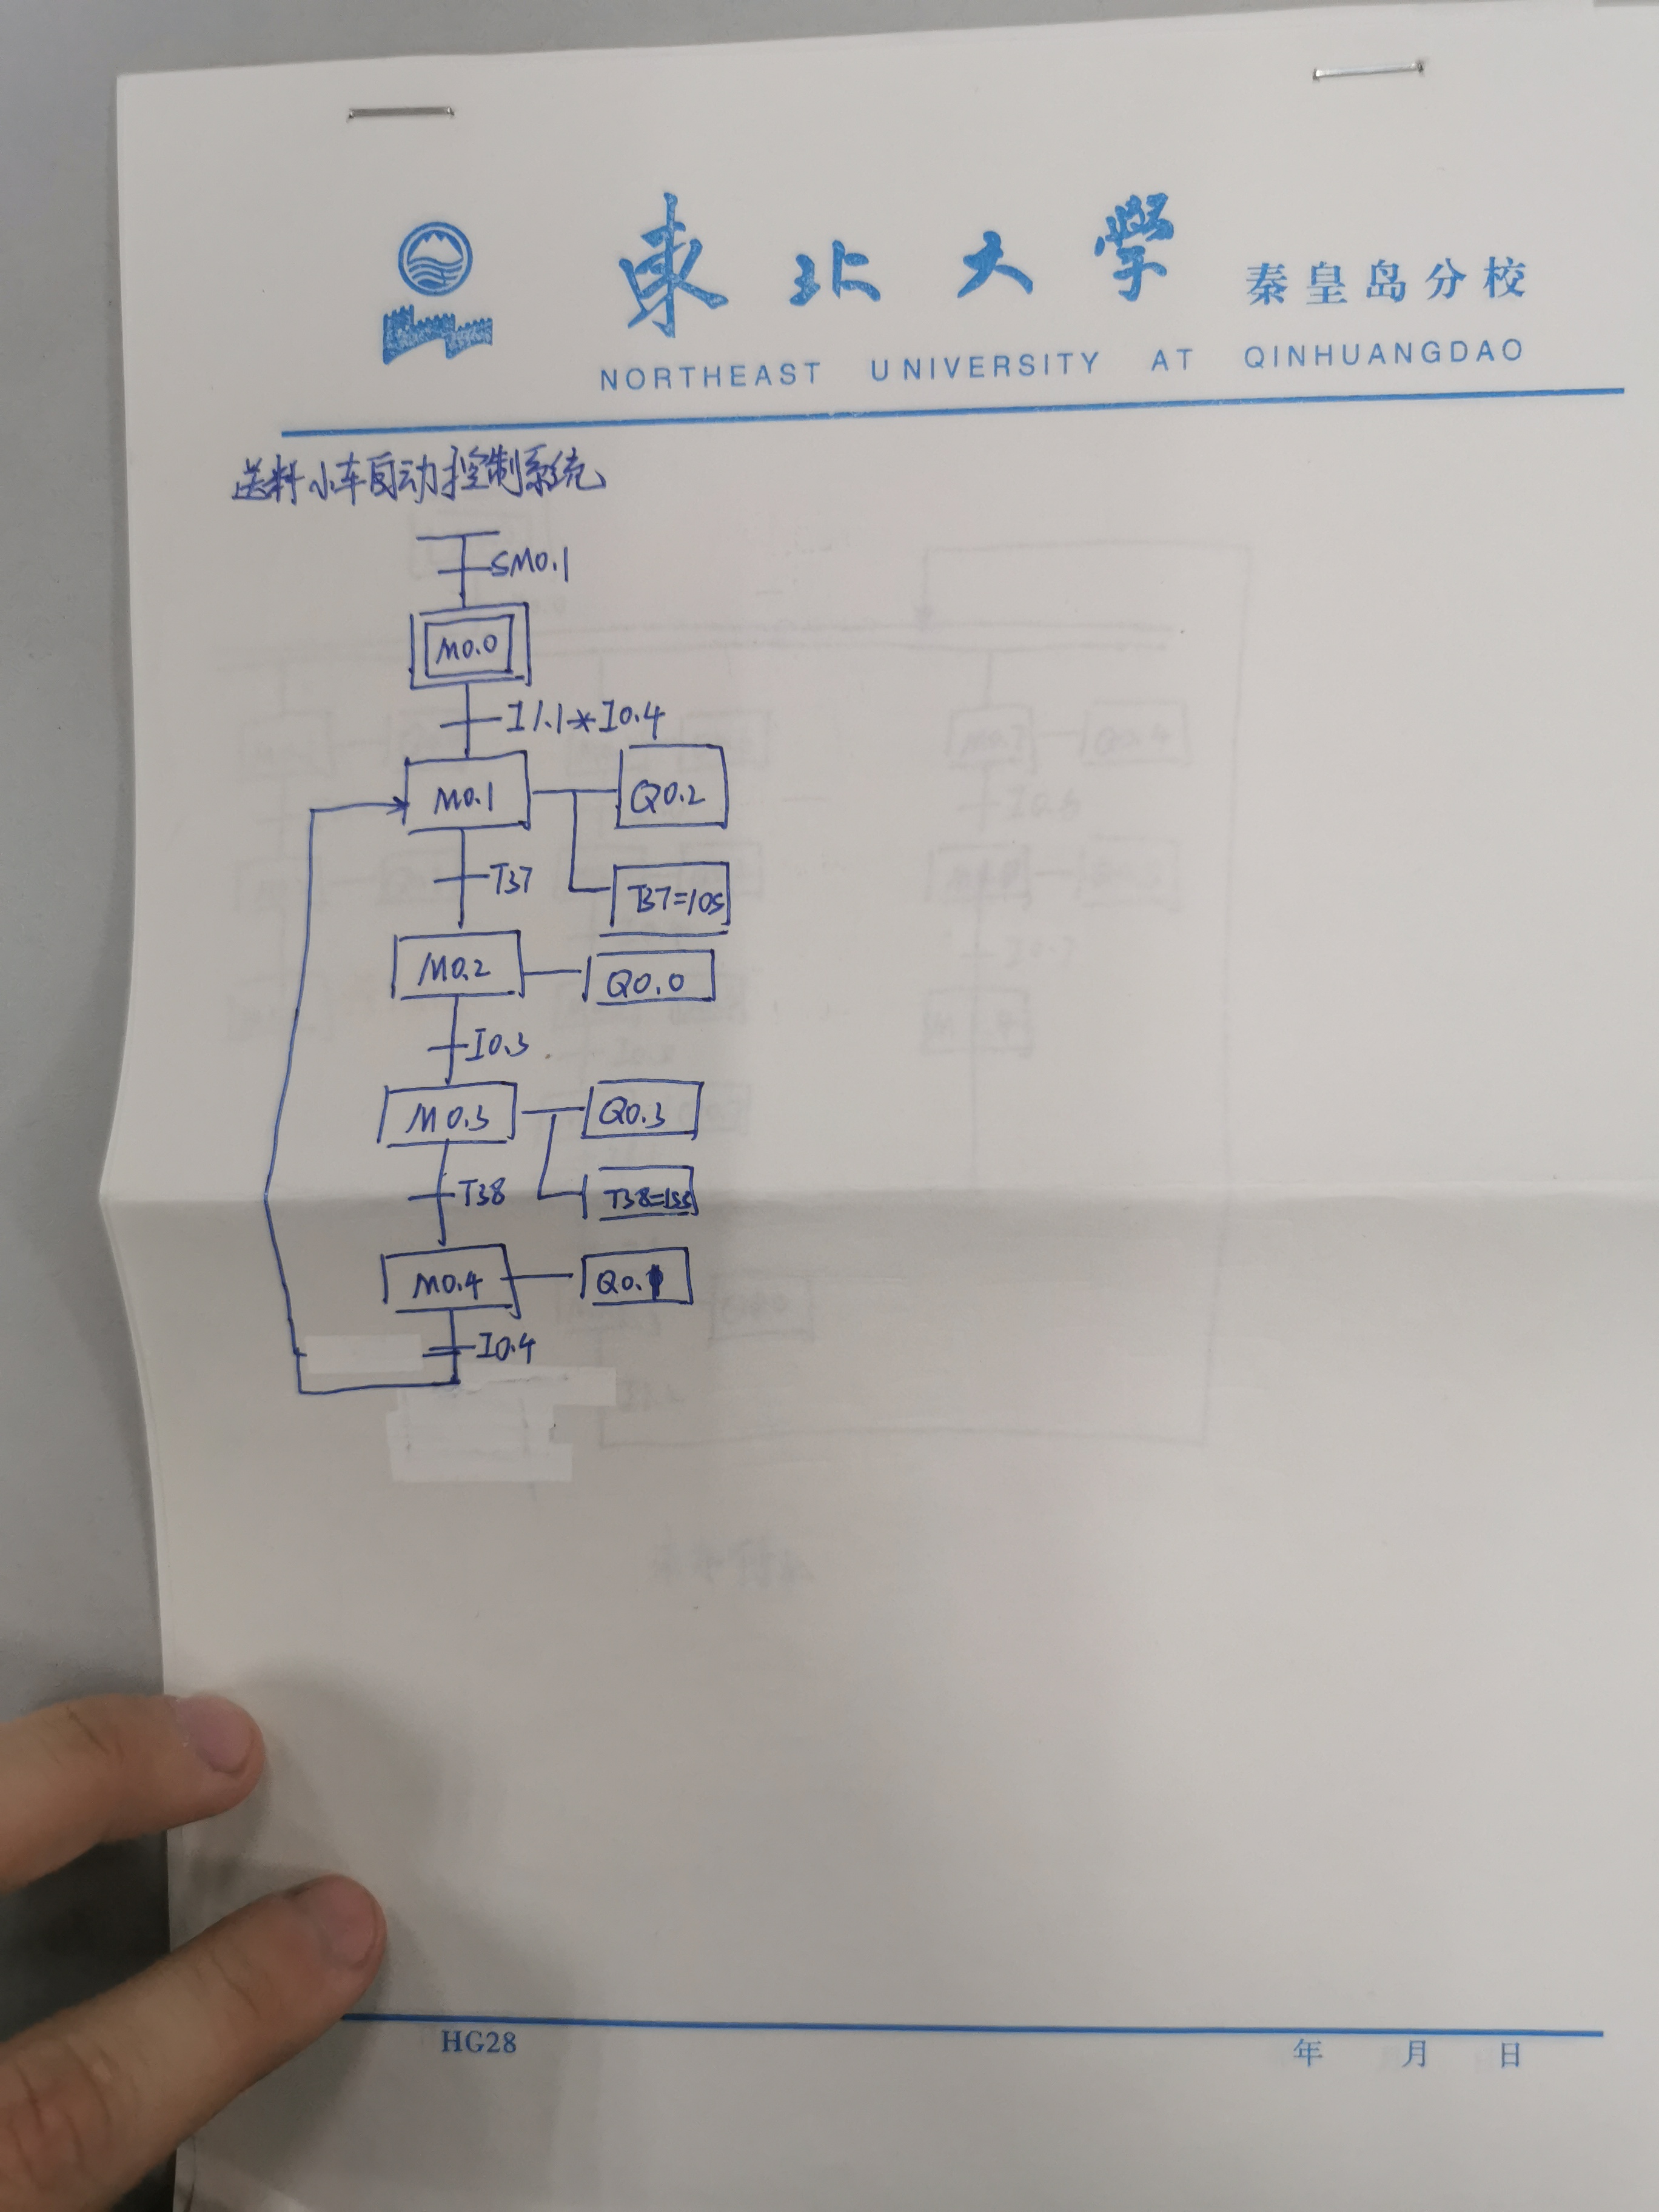 東北大学 秦皇岛分校
NORTHEAST UNIVERSITY AT QINHUANGDAO
送料小车自动控制系统
SM0.1
M0.0
I1.1*I0.4
M0.1 Q0.2
T37 T37=10s
M0.2 Q0.0
I0.3
M0.3 Q0.3
T38 T38=15s
M0.4 Q0.1
I0.4
HG28 年 月 日